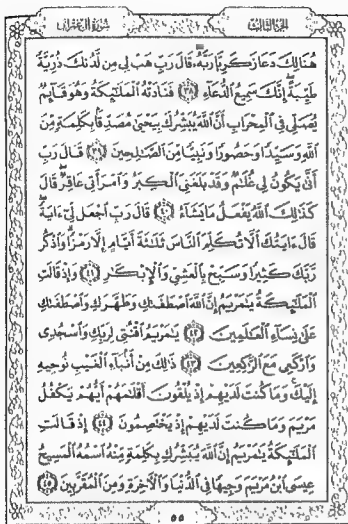 الجزء الثالث سورة آل عمران
هُنَالِكَ دَعَا زَكَرِيَّا رَبَّهُۥ قَالَ رَبِّ هَبْ لِى مِن لَّدُنكَ ذُرِّيَّةً
طَيِّبَةً إِنَّكَ سَمِيعُ ٱلدُّعَآءِ ﴿٣٨﴾ فَنَادَتْهُ ٱلْمَلَٰٓئِكَةُ وَهُوَ قَآئِمٌ
يُصَلِّى فِى ٱلْمِحْرَابِ أَنَّ ٱللَّهَ يُبَشِّرُكَ بِيَحْيَىٰ مُصَدِّقًۢا بِكَلِمَةٍ مِّنَ
ٱللَّهِ وَسَيِّدًا وَحَصُورًا وَنَبِيًّا مِّنَ ٱلصَّٰلِحِينَ ﴿٣٩﴾ قَالَ رَبِّ
أَنَّىٰ يَكُونُ لِى غُلَٰمٌ وَقَدْ بَلَغَنِىَ ٱلْكِبَرُ وَٱمْرَأَتِى عَاقِرٌ قَالَ
كَذَٰلِكَ ٱللَّهُ يَفْعَلُ مَا يَشَآءُ ﴿٤٠﴾ قَالَ رَبِّ ٱجْعَل لِّىٓ ءَايَةً
قَالَ ءَايَتُكَ أَلَّا تُكَلِّمَ ٱلنَّاسَ ثَلَٰثَةَ أَيَّامٍ إِلَّا رَمْزًا وَٱذْكُر
رَّبَّكَ كَثِيرًا وَسَبِّحْ بِٱلْعَشِىِّ وَٱلْإِبْكَٰرِ ﴿٤١﴾ وَإِذْ قَالَتِ
ٱلْمَلَٰٓئِكَةُ يَٰمَرْيَمُ إِنَّ ٱللَّهَ ٱصْطَفَىٰكِ وَطَهَّرَكِ وَٱصْطَفَىٰكِ
عَلَىٰ نِسَآءِ ٱلْعَٰلَمِينَ ﴿٤٢﴾ يَٰمَرْيَمُ ٱقْنُتِى لِرَبِّكِ وَٱسْجُدِى
وَٱرْكَعِى مَعَ ٱلرَّٰكِعِينَ ﴿٤٣﴾ ذَٰلِكَ مِنْ أَنۢبَآءِ ٱلْغَيْبِ نُوحِيهِ
إِلَيْكَ وَمَا كُنتَ لَدَيْهِمْ إِذْ يُلْقُونَ أَقْلَٰمَهُمْ أَيُّهُمْ يَكْفُلُ
مَرْيَمَ وَمَا كُنتَ لَدَيْهِمْ إِذْ يَخْتَصِمُونَ ﴿٤٤﴾ إِذْ قَالَتِ
ٱلْمَلَٰٓئِكَةُ يَٰمَرْيَمُ إِنَّ ٱللَّهَ يُبَشِّرُكِ بِكَلِمَةٍ مِّنْهُ ٱسْمُهُ ٱلْمَسِيحُ
عِيسَى ٱبْنُ مَرْيَمَ وَجِيهًا فِى ٱلدُّنْيَا وَٱلْءَاخِرَةِ وَمِنَ ٱلْمُقَرَّبِينَ ﴿٤٥﴾
٥٥